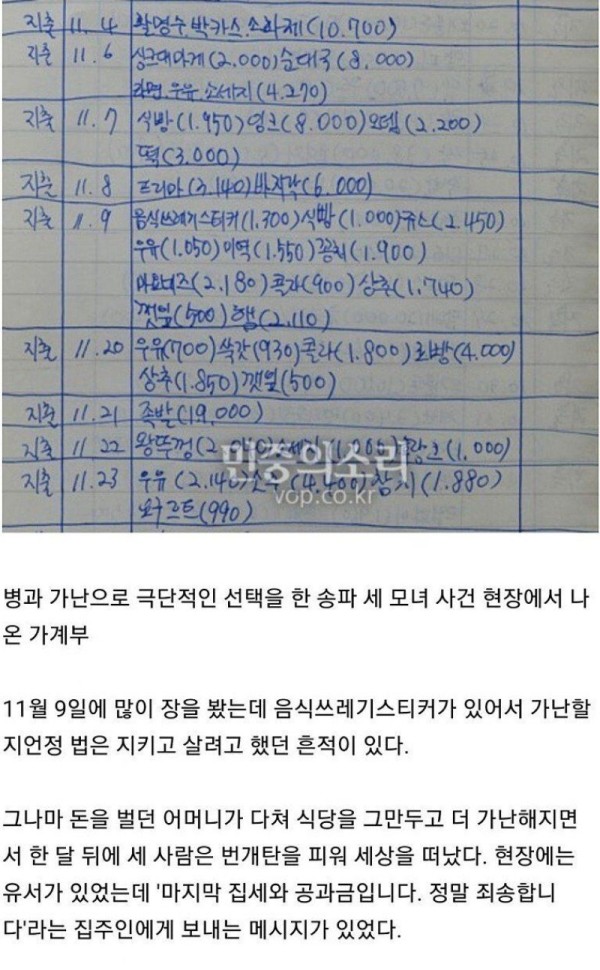 지출 11. 4 활명수, 박카스, 소화제(10.700)
지출 11. 6 싱크대마개(2.000) 순대국(8.000)
라면, 우유, 소세지(4.270)
지출 11. 7 식빵(1.950) (8.000) 오뎅(2.200)
떡(3.000)
지출 11. 8 프리마(3.140) 바지락(6.000)
지출 11. 9 음식쓰레기스티커(1.300) 식빵(1.000) 쥬스(2.450)
우유(1.050) 미역(1.550) 꽁치(1.900)
마요네즈(2.180) 콜라(900) 상추(1.740)
깻잎(500) 햄(2.110)
지출 11.20 우유(700) 쑥갓(930) 콜라(1.800) (4.000)
상추(1.850) 깻잎(500)
지출 11.21 족발(19.000)
지출 11.22 왕뚜껑 (1.000)
지출 11.23 우유 (2.140) (4.400) 참치(1.880)
요구르트(990)
민중의소리
vop.co.kr
병과 가난으로 극단적인 선택을 한 송파 세 모녀 사건 현장에서 나
온 가계부
11월 9일에 많이 장을 봤는데 음식쓰레기스티커가 있어서 가난할
지언정 법은 지키고 살려고 했던 흔적이 있다.
그나마 돈을 벌던 어머니가 다쳐 식당을 그만두고 더 가난해지면
서 한 달 뒤에 세 사람은 번개탄을 피워 세상을 떠났다. 현장에는
유서가 있었는데 '마지막 집세와 공과금입니다. 정말 죄송합니
다'라는 집주인에게 보내는 메시지가 있었다.